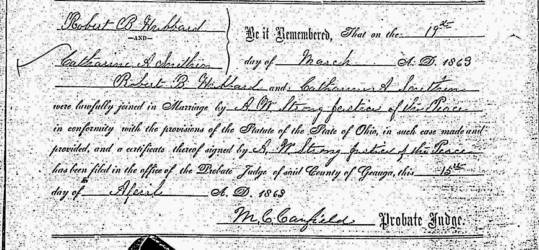 Robert B. Hubbard
—AND—
Be it Remembered, That on the 19th
Catharine A
day of March A. D. 1863
Robert B. Hubbard and Catharine A
were lawfully joined in Marriage by A. W. Strong Justice of the Peace
in conformity with the provisions of the Statute of the State of Ohio, in such case made and
provided, and a certificate thereof signed by A. W Strong Justice of the Peace
has been filed in the office of the Probate Judge of said County of Geauga, this 15th
day of April A. D. 1863
M. C. Canfield Probate Judge.